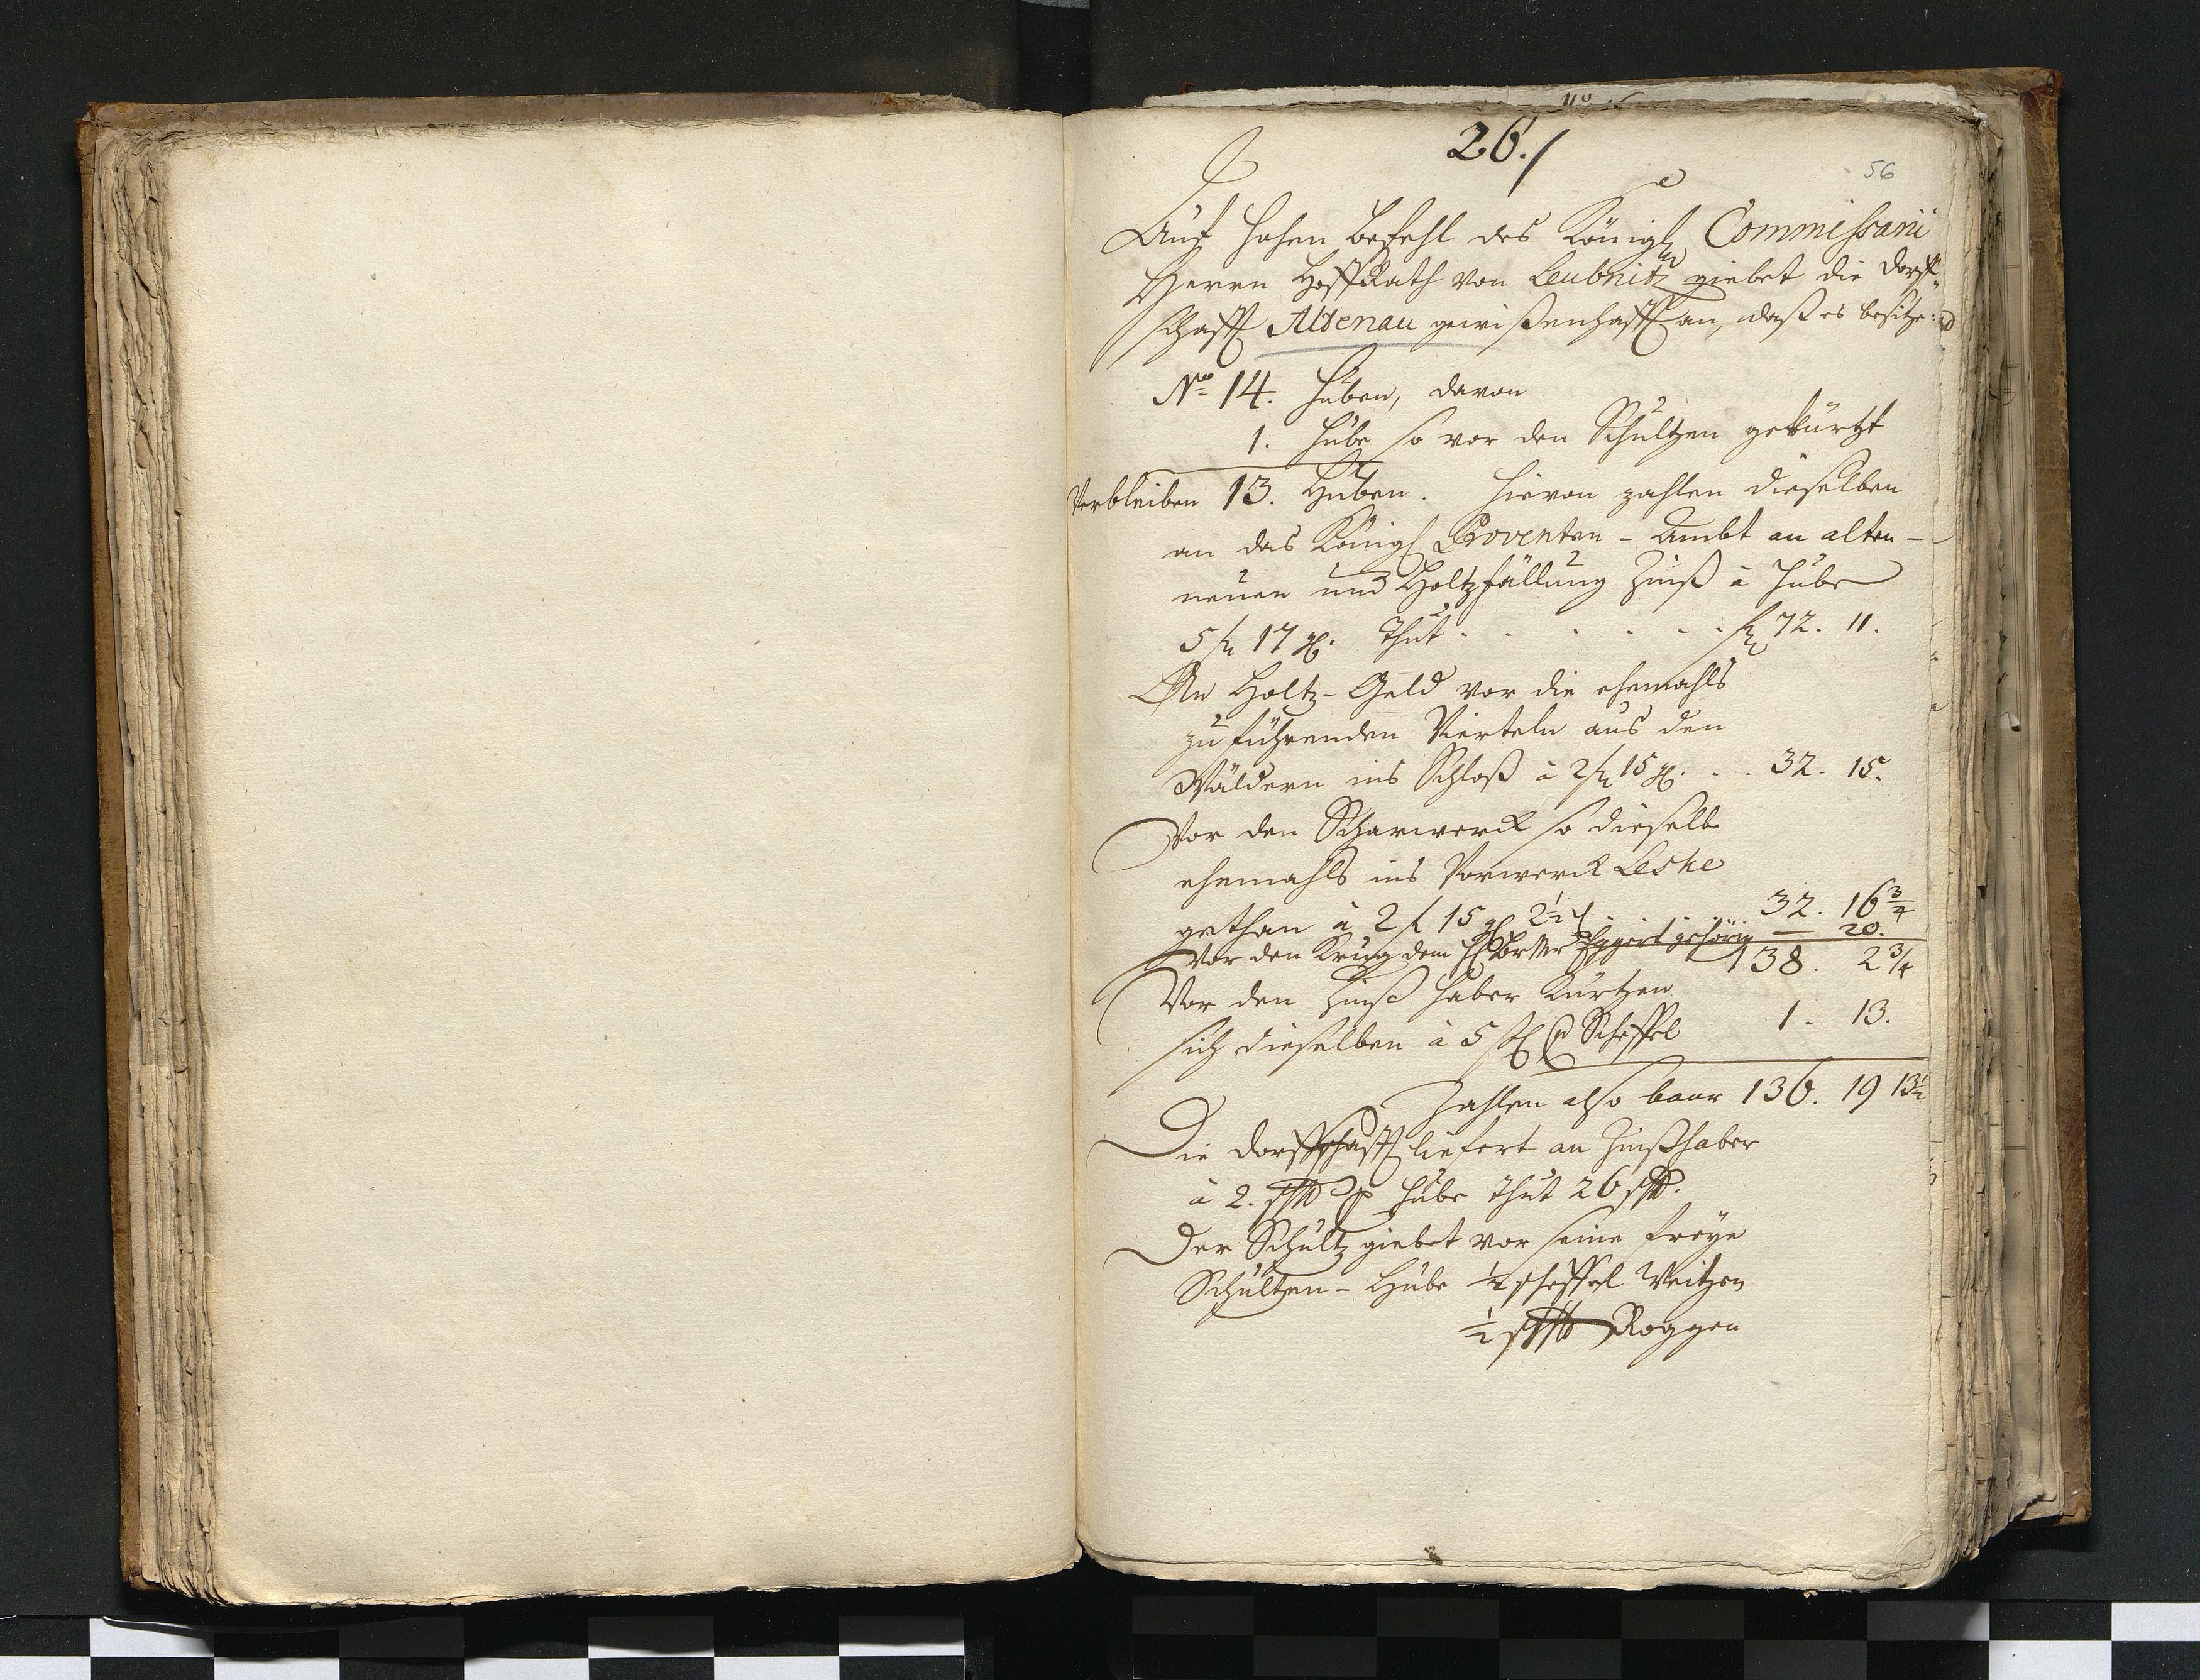 26./
56
Auf hohen Befehl des Königl Commissarii
Herrn HoffRath von Leubnitz giebet die Dorff-
schafft Altenau gewißenhafft an, daß es besitze:
No 14. Huben, davon
1. Hube so vor den Schultzen gekürtzt
Verbleiben 13. Huben. Hievon zahlen dieselben
an das Königl Proventen-Ambt an alten-
neuen und Holtzfällung Zinß à Hube
5 fl 17 gl. thut . . . . . . fl 72. 11.
An Holtz-Geld vor die ehemahls
zuführenden Vierteln aus den
Wäldern ins Schloß à 2 fl 15 gl. . . 32. 15.
Vor den Scharwerck so dieselbe
ehemahls ins Vorwerck Leske
gethan à 2 f 15 gl 2½ . 32. 16¾
Vor den Krug dem Eggert gehörig — 20.
138. 2¾
Vor den Zinß Haber Kürtzen
sich dieselben à 5 Scheffel 1. 13.
Zahlen also baar 136. 19 13½
Die Dorffschafft liefert an Zinßhaber
à 2. schfl p Hube thut 26 schfl.
Der Schultz giebet vor seine freye
Schultzen-Hube ½ scheffel Weitzen
½ schfl Roggen